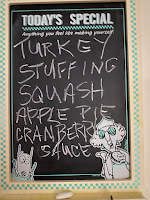 TODAY'S SPECIAL
Anything you feel like making yourself!
TURKEY
STUFFING
SQUASH
APPLE PIE
CRANBERRY
SAUCE